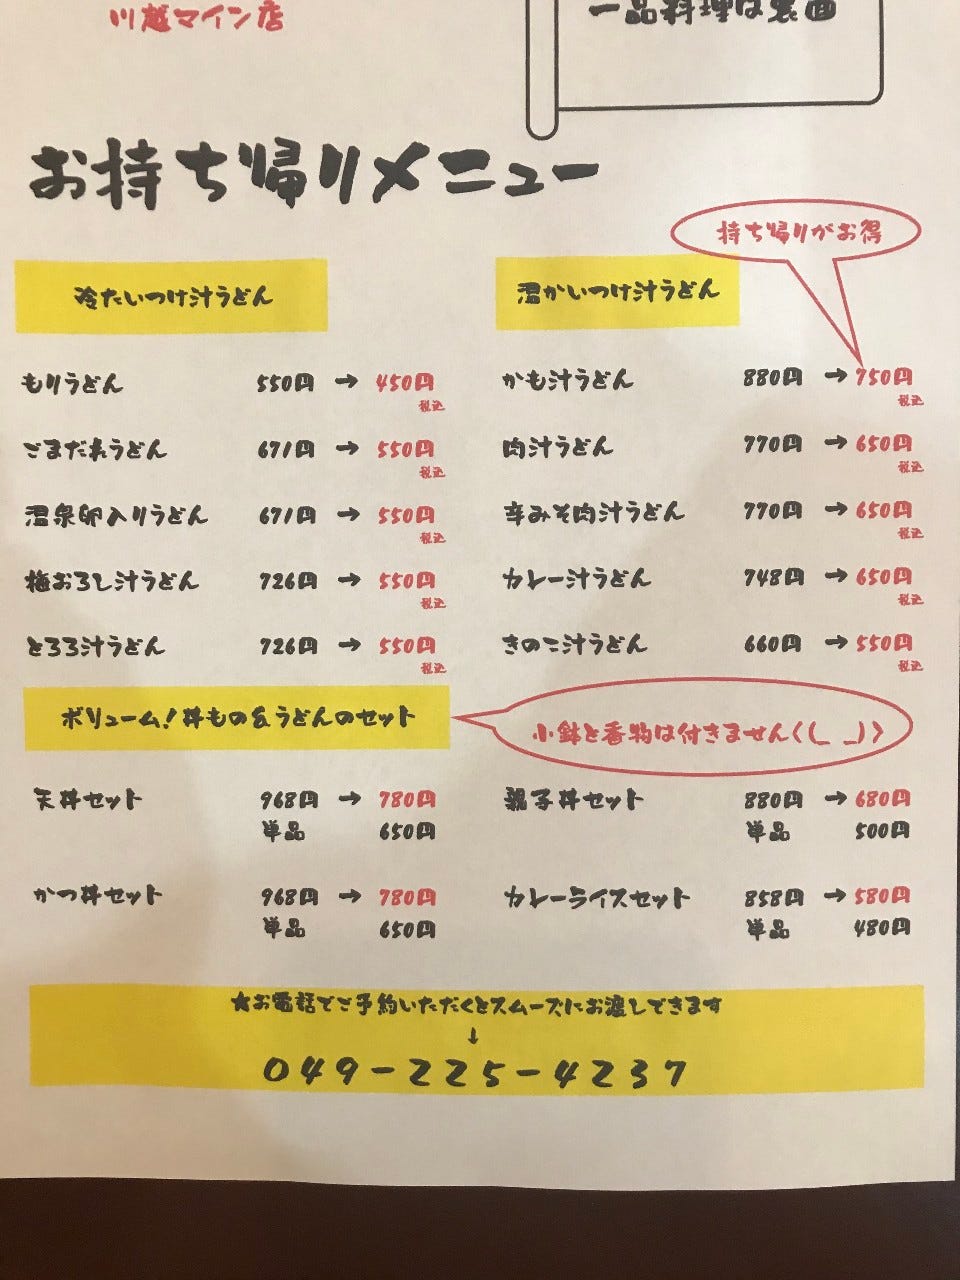 川越マイン店
一品料理は裏面
お持ち帰りメニュー
持ち帰りがお得
冷たいつけ汁うどん
もりうどん 550円 → 450円
税込
ごまだれうどん 671円 → 550円
税込
温泉卵入りうどん 671円 → 550円
税込
梅おろし汁うどん 726円 → 550円
税込
とろろ汁うどん 726円 → 550円
税込
温かいつけ汁うどん
かも汁うどん 880円 → 750円
税込
肉汁うどん 770円 → 650円
税込
辛みそ肉汁うどん 770円 → 650円
税込
カレー汁うどん 748円 → 650円
税込
きのこ汁うどん 660円 → 550円
税込
ボリューム！丼もの＆うどんのセット
小鉢と香物は付きません<(_ _)>
天丼セット 968円 → 780円
単品 650円
かつ丼セット 968円 → 780円
単品 650円
親子丼セット 880円 → 680円
単品 500円
カレーライスセット 858円 → 580円
単品 480円
★お電話でご予約いただくとスムーズにお渡しできます
↓
049-225-4237